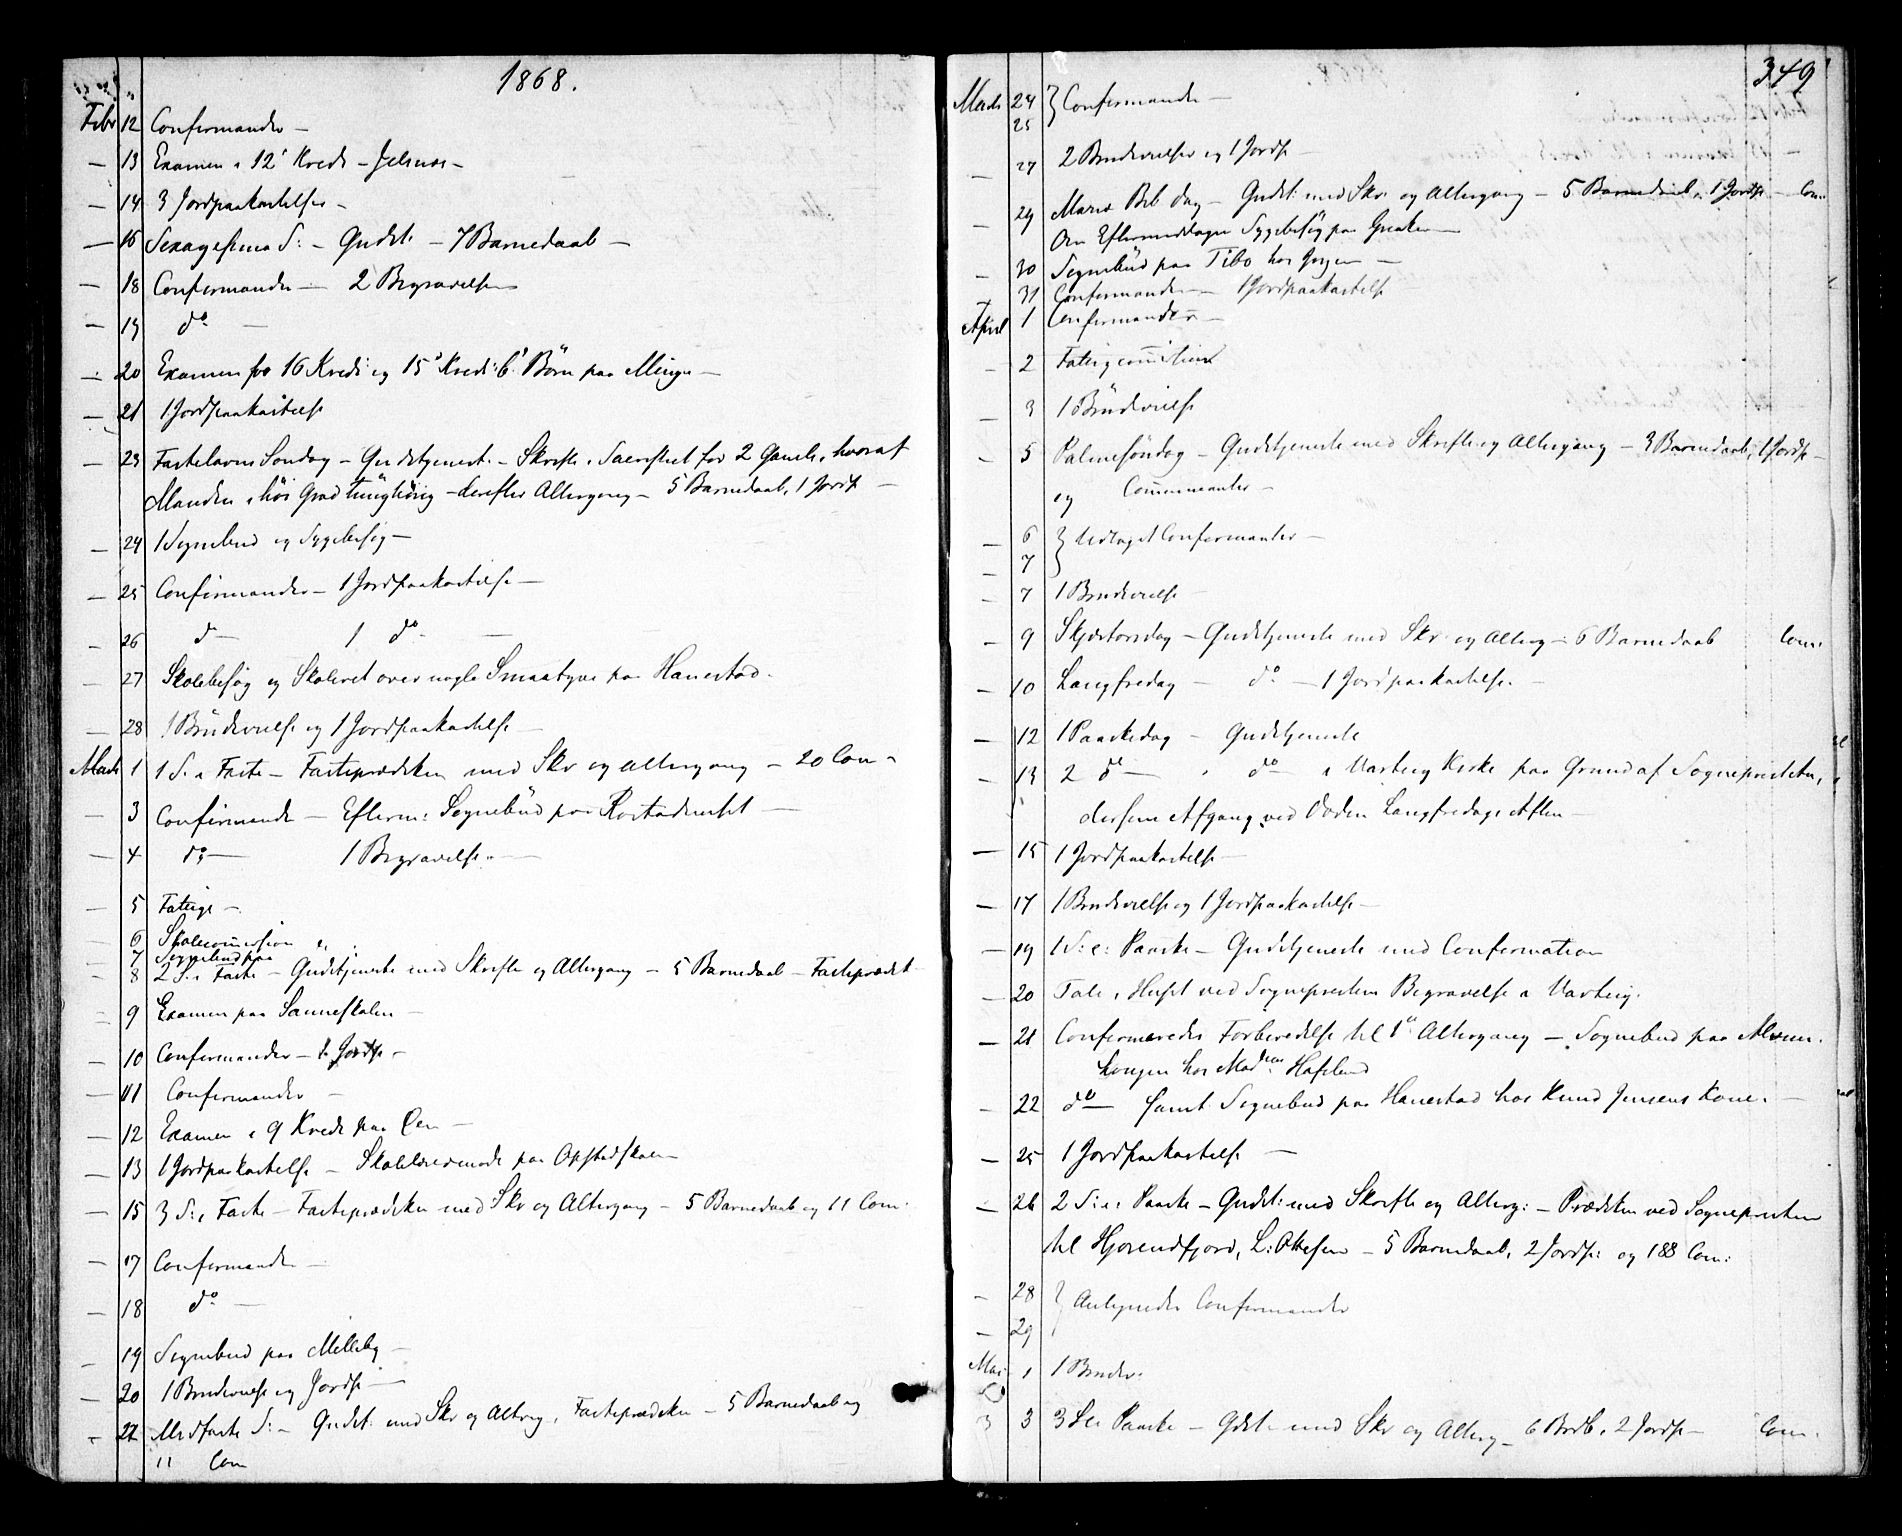 1868.
Febr 12 Confirmander –
– 13 Examen i 12' Kreds – Jelsnes –
– 14 3 Jordpaakastelser –
– 16 Sexagesima S: – Gudst: – 7 Barnedaab –
– 18 Confirmander – 2 Begravelser
– 19 do –
– 20 Examen for 16 Kreds og 15' Kreds: Børn paa Minge –
– 21 1 Jordpaakastelse
– 23 Fastelavns Søndag – Gudstjeneste – Skrifte i Sacristiet for 2 Gamle, hvoraf
Manden i høi Grad tunghørig – derefter Altergang – 5 Barnedaab, 1 Jordp –
– 24 1 Sognebud og Sygebesøg –
– 25 Confirmander – 1 Jordpaakastelse –
– 26 do – 1 do –
– 27 Skolebesøg og Skoleret over nogle Smaatyve paa Hanestad.
– 28 1 Brudevielse og 1 Jordpaakastelse –
Marts 1 1 S. i Faste – Fasteprædiken med Skr og Altergang – 20 Com –
– 3 Confirmande – Efterm: Sognebud paa –
– 4 do – 1 Begravelse –
– 5 Fattige –
– 6 Skolecommission
– 7 Sognebud paa
– 8 2 S. i Faste – Gudstjeneste med Skrifte og Altergang – 5 Barnedaab – Fastepræd:
– 9 Examen paa Sanneskolen –
– 10 Confirmander – 1 Jordp –
– 11 Confirmander –
– 12 Examen i 9 Kreds paa Øen –
– 13 1 Jordpaakastelse – Skolelærermøde paa Opstadskolen –
– 15 3 S: i Faste – Fasteprædiken med Skr og Altergang – 5 Barnedaab og 11 Com:
– 17 Confirmander –
– 18 do –
– 19 Sognebud paa Melleby –
– 20 1 Brudevielse og Jordp –
– 22 Midfaste S: – Gudst: med Skr og Alterg, Fasteprædiken – 5 Barnedaab og
11 Com
349
Marts 24 } Confirmander –
25
– 27 2 Brudevielser og 1 Jordp –
– 29 Mariæ Beb dag – Gudst: med Skr. og Altergang – 5 Barnedaab, 1 Jordp – Com:
Om Eftermiddagen Sygebesøg paa Greaker –
– 30 Sognebud paa Tibo hos –
– 31 Confirmander – 1 Jordpaakastelse
April 1 Confirmander –
– 2 Fattigcommission
– 3 1 Brudevielse
– 5 Palmesøndag – Gudstjeneste med Skrifte og Altergang – 3 Barnedaab, 1 Jordp –
og Communicanter –
– 6 } Udtaget Confirmanter –
– 7
– 7 1 Brudevielse –
– 9 Skjærtorsdag – Gudstjeneste med Skr og Alterg – 6 Barnedaab Com:
– 10 Langfredag – do – 1 Jordpaakastelse. –
– 12 1 Paaskedag – Gudstjeneste
– 13 2 d – do – i Varteig Kirke paa Grund af Sognepresten,
dersens Afgang ved Døden Langfredags Aften –
– 15 1 Jordpaakastelse –
– 17 1 Brudevielse og 1 Jordpaakastelse –
– 19 1 S: e: Paaske – Gudstjeneste med Confirmation
– 20 Tale i Huset ved Sogneprestens Begravelse i Varteig.
– 21 Confirmeredes Forberedelse til 1ste Altergang – Sognebud paa
hos Madm Hafslund
– 22 do – samt Sognebud paa Hanestad hos Knud Jensens Kone. –
– 25 1 Jordpaakastelse –
– 26 2 S: e: Paaske – Gudst: med Skrifte og Alterg: – Prædiken ved Sognepresten
til Hjørendfjord, L: Ottesen – 5 Barnedaab, 2 Jordp: og 188 Com:
– 28 } Antegnedes Confirmander
– 29
Mai 1 1 Brudev:
3 3 S e: Paaske – Gdst – med Skr og Alterg – 6 Brdb, 2 Jordp – Com.